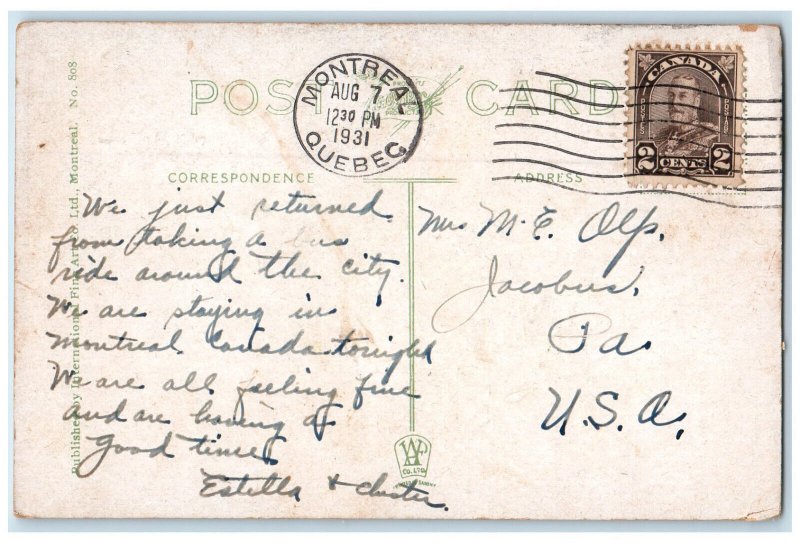 POST CARD
MONTREAL
AUG 7
12 30 PM
1931
QUEBEC
CANADA
POSTES POSTAGE
2 CENTS 2
CORRESPONDENCE
ADDRESS
Published by International Fine Art Co. Ltd., Montreal. No. 808
We just returned
from taking a bus
ride around the city.
We are staying in
Montreal Canada tonight
We are all feeling fine
and are having a
good time.
Estella & Chester.
Mrs M. E. Olp.
Jacobus,
Pa.
U.S.A.
CO. LTD.